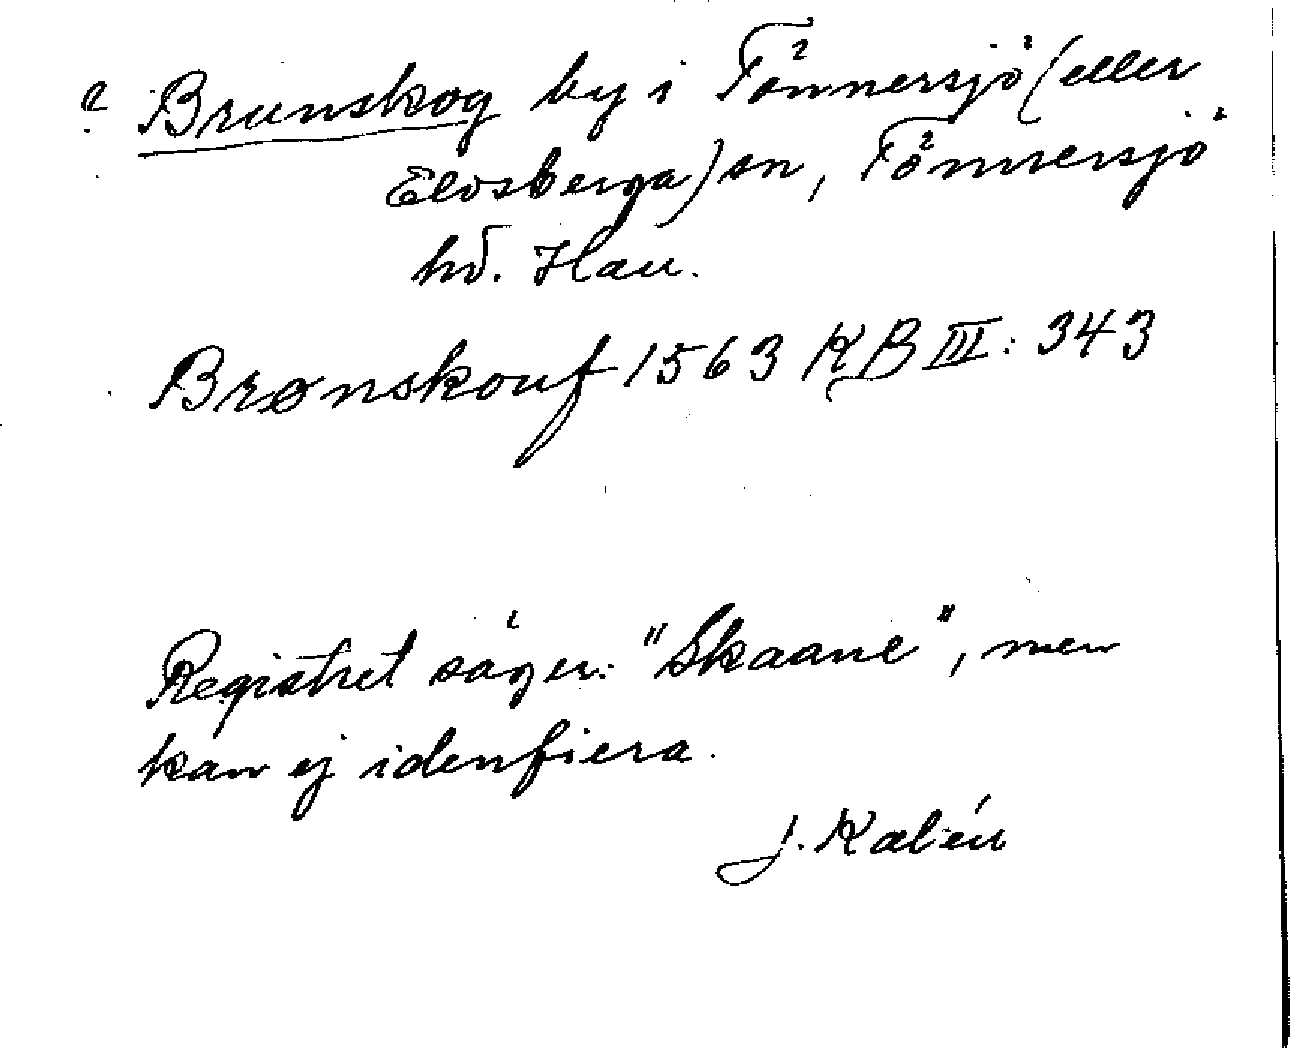 ? Brunskog by i Tönnersjö (eller
Eldsberga) sn, Tönnersjö
hd. Hall.
Brønskouf 1563 KB III: 343
Registret säger: "Skaane", men
kan ej idenfiera.
J. Kalén